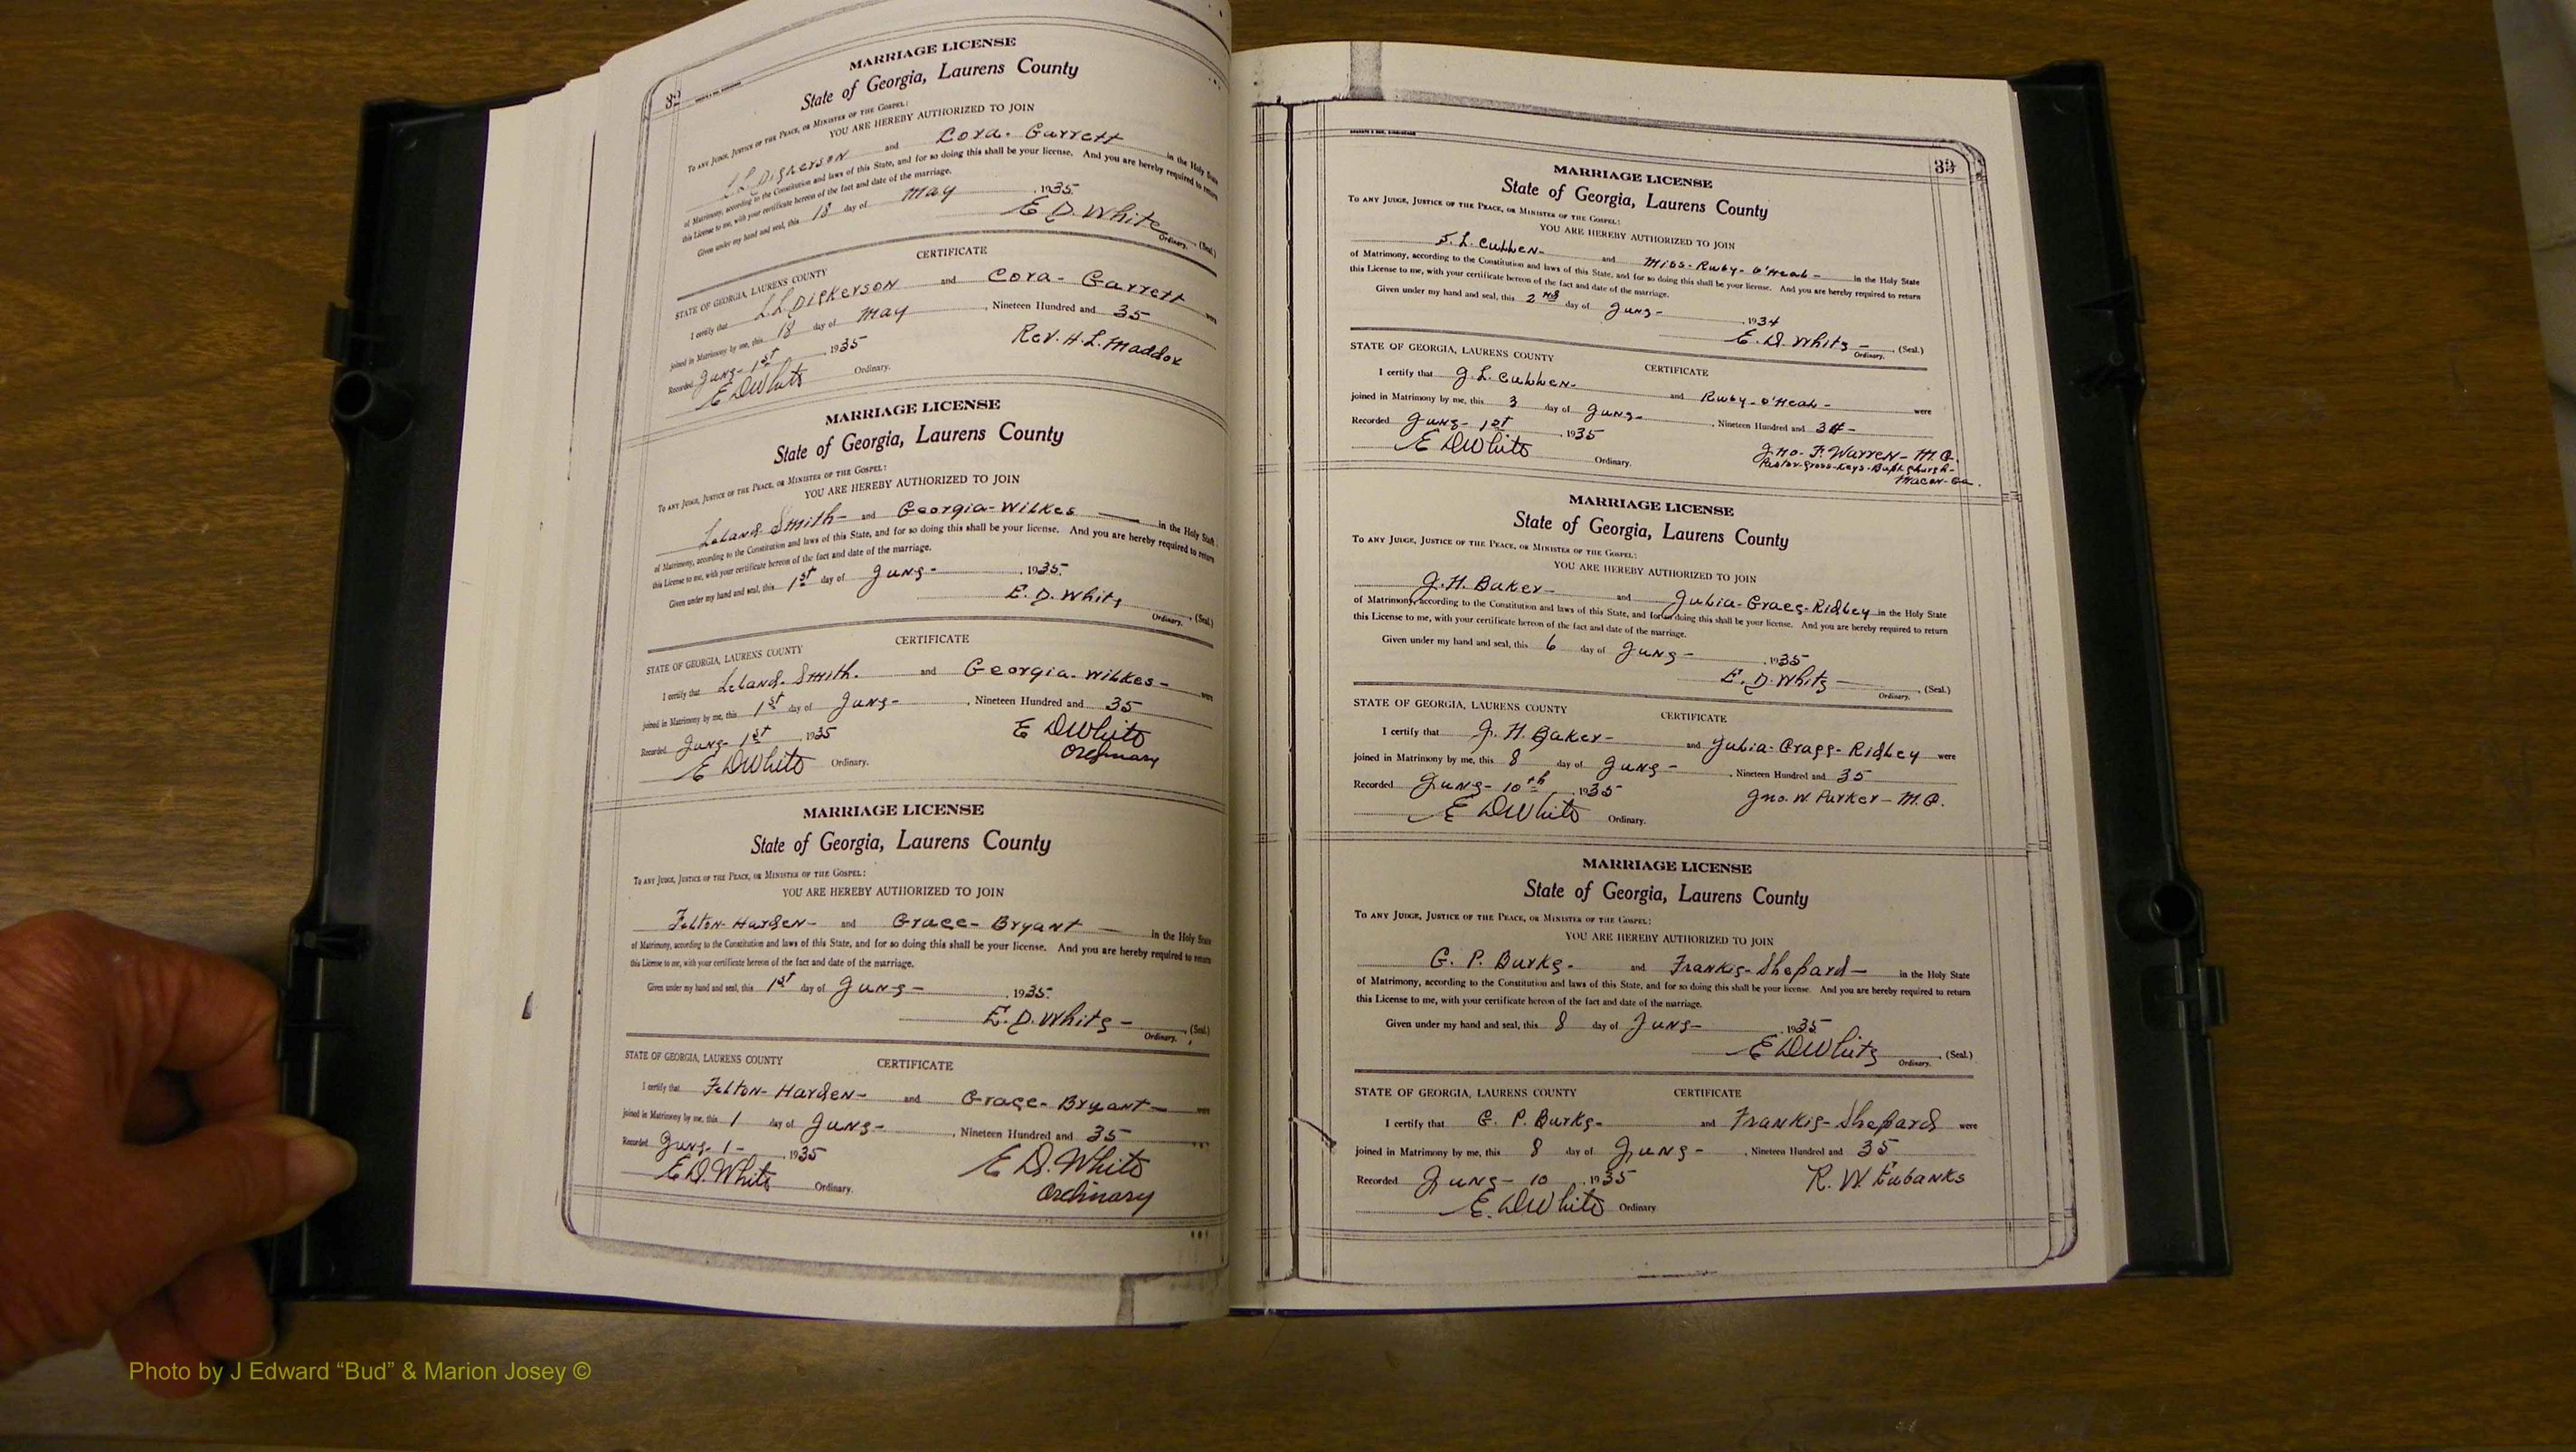 32
MARRIAGE LICENSE
State of Georgia, Laurens County
To any Judge, Justice of the Peace, or Minister of the Gospel:
YOU ARE HEREBY AUTHORIZED TO JOIN
L L Dickerson and Cora. Garrett in the Holy State
of Matrimony, according to the Constitution and laws of this State, and for so doing this shall be your license. And you are hereby required to return
this License to me, with your certificate hereon of the fact and date of the marriage.
Given under my hand and seal, this 18 day of May 1935
E D. White (Seal.)
Ordinary.
CERTIFICATE
STATE OF GEORGIA, LAURENS COUNTY
I certify that L.L Dickerson and Cora - Garrett were
joined in Matrimony by me, this 18 day of May, Nineteen Hundred and 35
Recorded June - 1st 1935 Rev. H. L. Maddox
E D White Ordinary.
MARRIAGE LICENSE
State of Georgia, Laurens County
To any Judge, Justice of the Peace, or Minister of the Gospel:
YOU ARE HEREBY AUTHORIZED TO JOIN
Leland Smith - and Georgia - Wilkes in the Holy State
of Matrimony, according to the Constitution and laws of this State, and for so doing this shall be your license. And you are hereby required to return
this License to me, with your certificate hereon of the fact and date of the marriage.
Given under my hand and seal, this 1st day of June - 1935
E. D. White (Seal.)
Ordinary.
CERTIFICATE
STATE OF GEORGIA, LAURENS COUNTY
I certify that Leland. Smith. and Georgia. Wilkes - were
joined in Matrimony by me, this 1st day of June -, Nineteen Hundred and 35
Recorded June - 1st 1935 E D White
E D White Ordinary. Ordinary
MARRIAGE LICENSE
State of Georgia, Laurens County
To any Judge, Justice of the Peace, or Minister of the Gospel:
YOU ARE HEREBY AUTHORIZED TO JOIN
Felton - Harden - and Grace - Bryant - in the Holy State
of Matrimony, according to the Constitution and laws of this State, and for so doing this shall be your license. And you are hereby required to return
this License to me, with your certificate hereon of the fact and date of the marriage.
Given under my hand and seal, this 1st day of June - 1935
E. D. White - (Seal.)
Ordinary.
STATE OF GEORGIA, LAURENS COUNTY CERTIFICATE
I certify that Felton - Harden - and Grace - Bryant - were
joined in Matrimony by me, this 1 day of June -, Nineteen Hundred and 35
Recorded June - 1 - 1935 E D. White
E D. White Ordinary. Ordinary
33
MARRIAGE LICENSE
State of Georgia, Laurens County
To any Judge, Justice of the Peace, or Minister of the Gospel:
YOU ARE HEREBY AUTHORIZED TO JOIN
J. L. Cullen - and Miss - Ruby - O'Neal - in the Holy State
of Matrimony, according to the Constitution and laws of this State, and for so doing this shall be your license. And you are hereby required to return
this License to me, with your certificate hereon of the fact and date of the marriage.
Given under my hand and seal, this 2nd day of June - 1934
E. D. White - (Seal.)
Ordinary.
STATE OF GEORGIA, LAURENS COUNTY CERTIFICATE
I certify that J. L. Cullen - and Ruby - O'Neal - were
joined in Matrimony by me, this 3 day of June -, Nineteen Hundred and 34 -
Recorded June - 1st 1935 Jno. F. Warren - M. G.
E D White Ordinary. Pastor - Cross - Keys - Bapt. Church -
Macon - Ga.
MARRIAGE LICENSE
State of Georgia, Laurens County
To any Judge, Justice of the Peace, or Minister of the Gospel:
YOU ARE HEREBY AUTHORIZED TO JOIN
J. H. Baker - and Julia - Grace - Ridley in the Holy State
of Matrimony, according to the Constitution and laws of this State, and for so doing this shall be your license. And you are hereby required to return
this License to me, with your certificate hereon of the fact and date of the marriage.
Given under my hand and seal, this 6 day of June - 1935
E. D. White (Seal.)
Ordinary.
STATE OF GEORGIA, LAURENS COUNTY CERTIFICATE
I certify that J. H. Baker - and Julia - Grace - Ridley were
joined in Matrimony by me, this 8 day of June -, Nineteen Hundred and 35
Recorded June - 10th 1935 Jno. W. Parker - M. G.
E D White Ordinary.
MARRIAGE LICENSE
State of Georgia, Laurens County
To any Judge, Justice of the Peace, or Minister of the Gospel:
YOU ARE HEREBY AUTHORIZED TO JOIN
G. P. Burke - and Frankie - Shepard - in the Holy State
of Matrimony, according to the Constitution and laws of this State, and for so doing this shall be your license. And you are hereby required to return
this License to me, with your certificate hereon of the fact and date of the marriage.
Given under my hand and seal, this 8 day of June - 1935
E D White (Seal.)
Ordinary.
STATE OF GEORGIA, LAURENS COUNTY CERTIFICATE
I certify that G. P. Burke - and Frankie - Shepard were
joined in Matrimony by me, this 8 day of June -, Nineteen Hundred and 35
Recorded June - 10 1935 R. W. Eubanks
E. D White Ordinary
Photo by J Edward “Bud” & Marion Josey ©